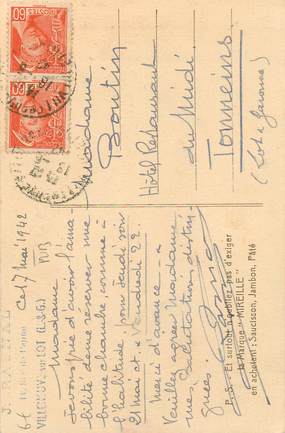 J.
11, Rue de Penne
VILLENEUVE-sur-LOT (L.-&-G.)
Ce 17 Mai 1942
Madame
Je vous prie d'avoir l'ama-
bilité de me réserver une
bonne chambre, comme à
l'habitude, pour jeudi soir
21 mai et Vendredi 22
Merci d'avance - &
Veuillez agréer Madame
mes Salutations distin-
guées.
P. S. Et surtout n'oubliez pas d'exiger
la Marque "MIREILLE"
en achetant : Saucisson, Jambon, Pâté
Madame
Boutin
Hôtel Restaurant
du Midi
Tonneins
(Lot & Garonne)
POSTES
60
60